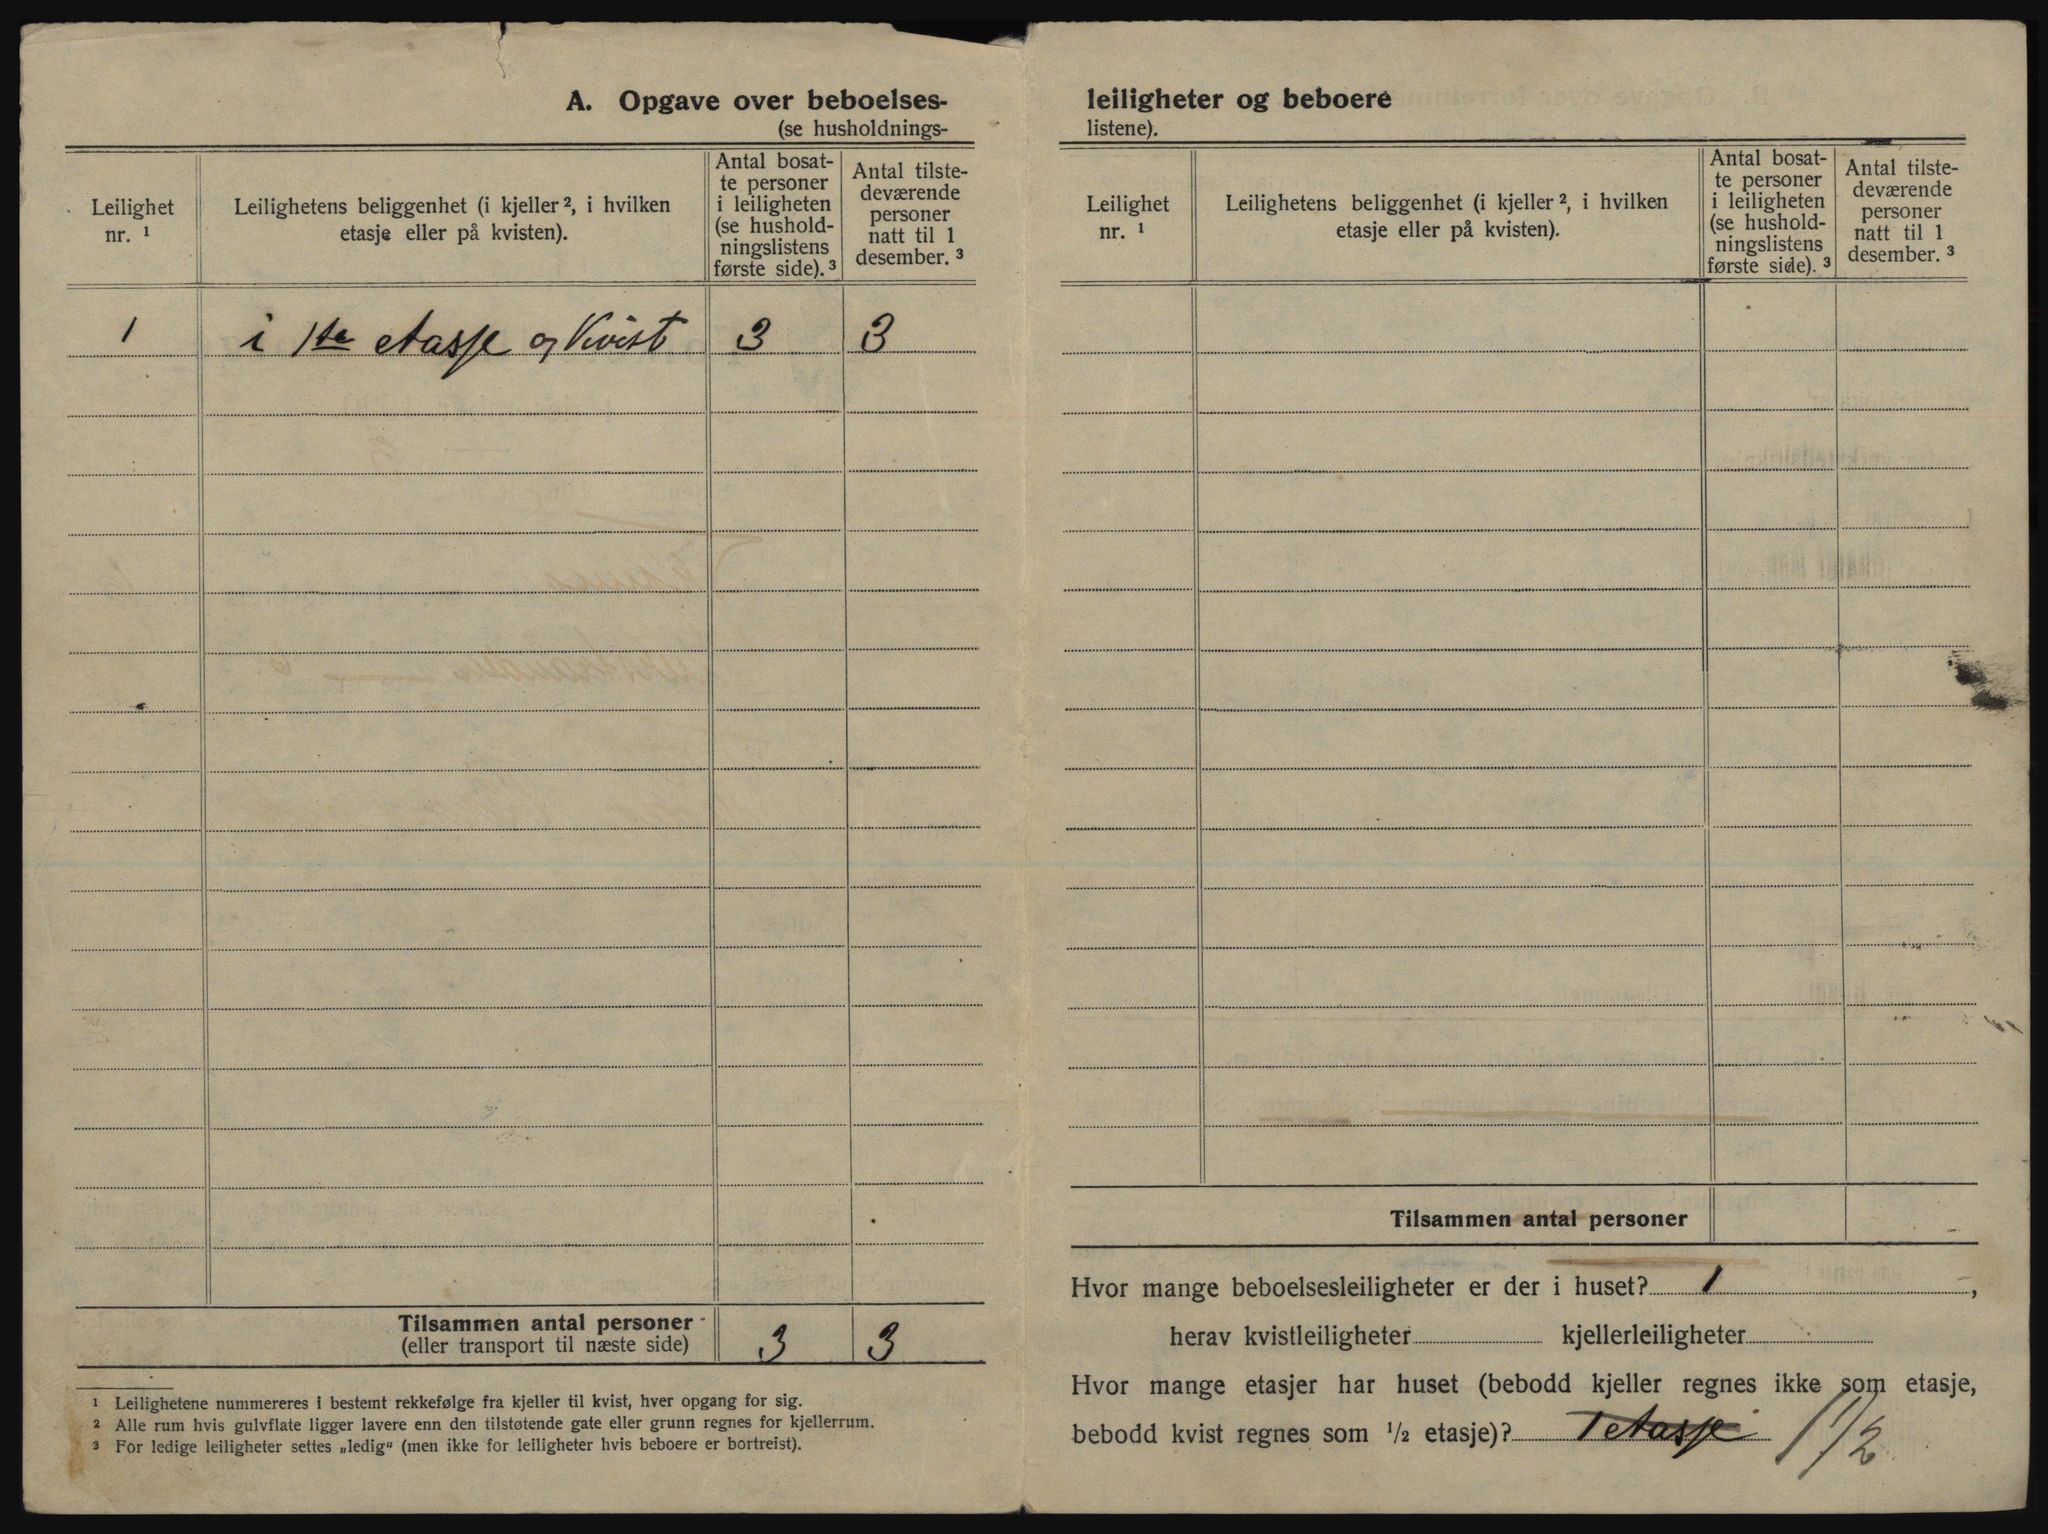 A. Opgave over beboelses-
(se husholdnings-
Leilighet nr. ¹
Leilighetens beliggenhet (i kjeller ², i hvilken
etasje eller på kvisten).
Antal bosat-
te personer
i leiligheten
(se hushold-
ningslistens
første side). ³
Antal tilste-
deværende
personer
natt til 1
desember. ³
1 i 1te etasje og Kvist 3 3
Tilsammen antal personer 3 3
(eller transport til næste side)
¹ Leilighetene nummereres i bestemt rekkefølge fra kjeller til kvist, hver opgang for sig.
² Alle rum hvis gulvflate ligger lavere enn den tilstøtende gate eller grunn regnes for kjellerrum.
³ For ledige leiligheter settes „ledig“ (men ikke for leiligheter hvis beboere er bortreist).
leiligheter og beboere
listene).
Leilighet nr. ¹
Leilighetens beliggenhet (i kjeller ², i hvilken
etasje eller på kvisten).
Antal bosat-
te personer
i leiligheten
(se hushold-
ningslistens
første side). ³
Antal tilste-
deværende
personer
natt til 1
desember. ³
Tilsammen antal personer
Hvor mange beboelsesleiligheter er der i huset? 1,
herav kvistleiligheter kjellerleiligheter
Hvor mange etasjer har huset (bebodd kjeller regnes ikke som etasje,
bebodd kvist regnes som ½ etasje)? 1 etasje 1 1/2